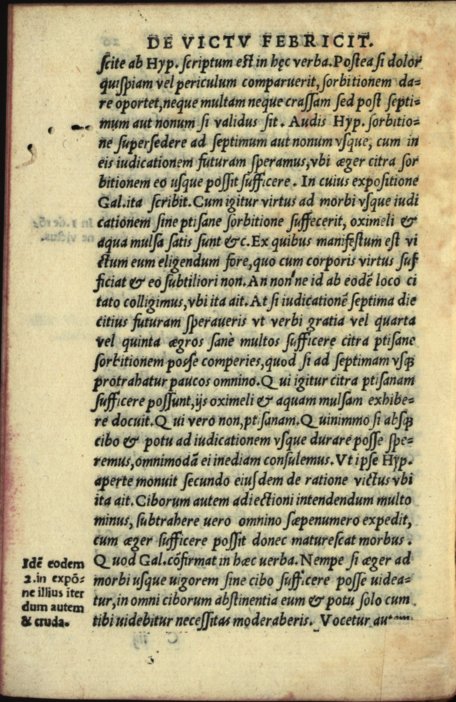 DE VICTV FEBRICIT.
scite ab Hyp. scriptum est in hęc verba. Postea si dolor
quispiam vel periculum comparuerit, sorbitionem da-
re oportet, neque multam neque crassam sed post septi-
mum aut nonum si validus sit. Audis Hyp. sorbitio-
ne supersedere ad septimum aut nonum vsque, cum in
eis iudicationem futuram speramus, vbi æger citra sor
bitionem eo usque possit sufficere. In cuius expositione
Gal. ita scribit. Cum igitur virtus ad morbi vsque iudi
cationem sine ptisane sorbitione suffecerit, oximeli &
aqua mulsa satis sunt &c. Ex quibus manifestum est vi
ctum eum eligendum fore, quo cum corporis virtus suf
ficiat & eo subtiliori non. An non ne id ab eodē loco ci
tato colligimus, vbi ita ait. At si iudicationē septima die
citius futuram speraueris vt verbi gratia vel quarta
vel quinta ægros sane multos sufficere citra ptisane
sorbitionem posse comperies, quod si ad septimam vsq
protrahatur paucos omnino. Qui igitur citra ptisanam
sufficere possunt, ijs oximeli & aquam mulsam exhibe-
re docuit. Qui vero non, ptisanam. Quinimmo si absq
cibo & potu ad iudicationem vsque durare posse spe-
remus, omnimodā ei inediam consulemus. Vt ipse Hyp.
aperte monuit secundo eiusdem de ratione victus vbi
ita ait. Ciborum autem adiectioni intendendum multo
minus, subtrahere uero omnino sæpenumero expedit,
cum æger sufficere possit donec maturescat morbus.
Quod Gal. cōfirmat in hæc uerba. Nempe si æger ad
morbi usque uigorem sine cibo sufficere posse uidea-
tur, in omni ciborum abstinentia eum & potu solo cum
tibi uidebitur necessitas moderaberis. Vocetur autem
Idē eodem
2. in expō-
ne illius iter
dum autem
& cruda.